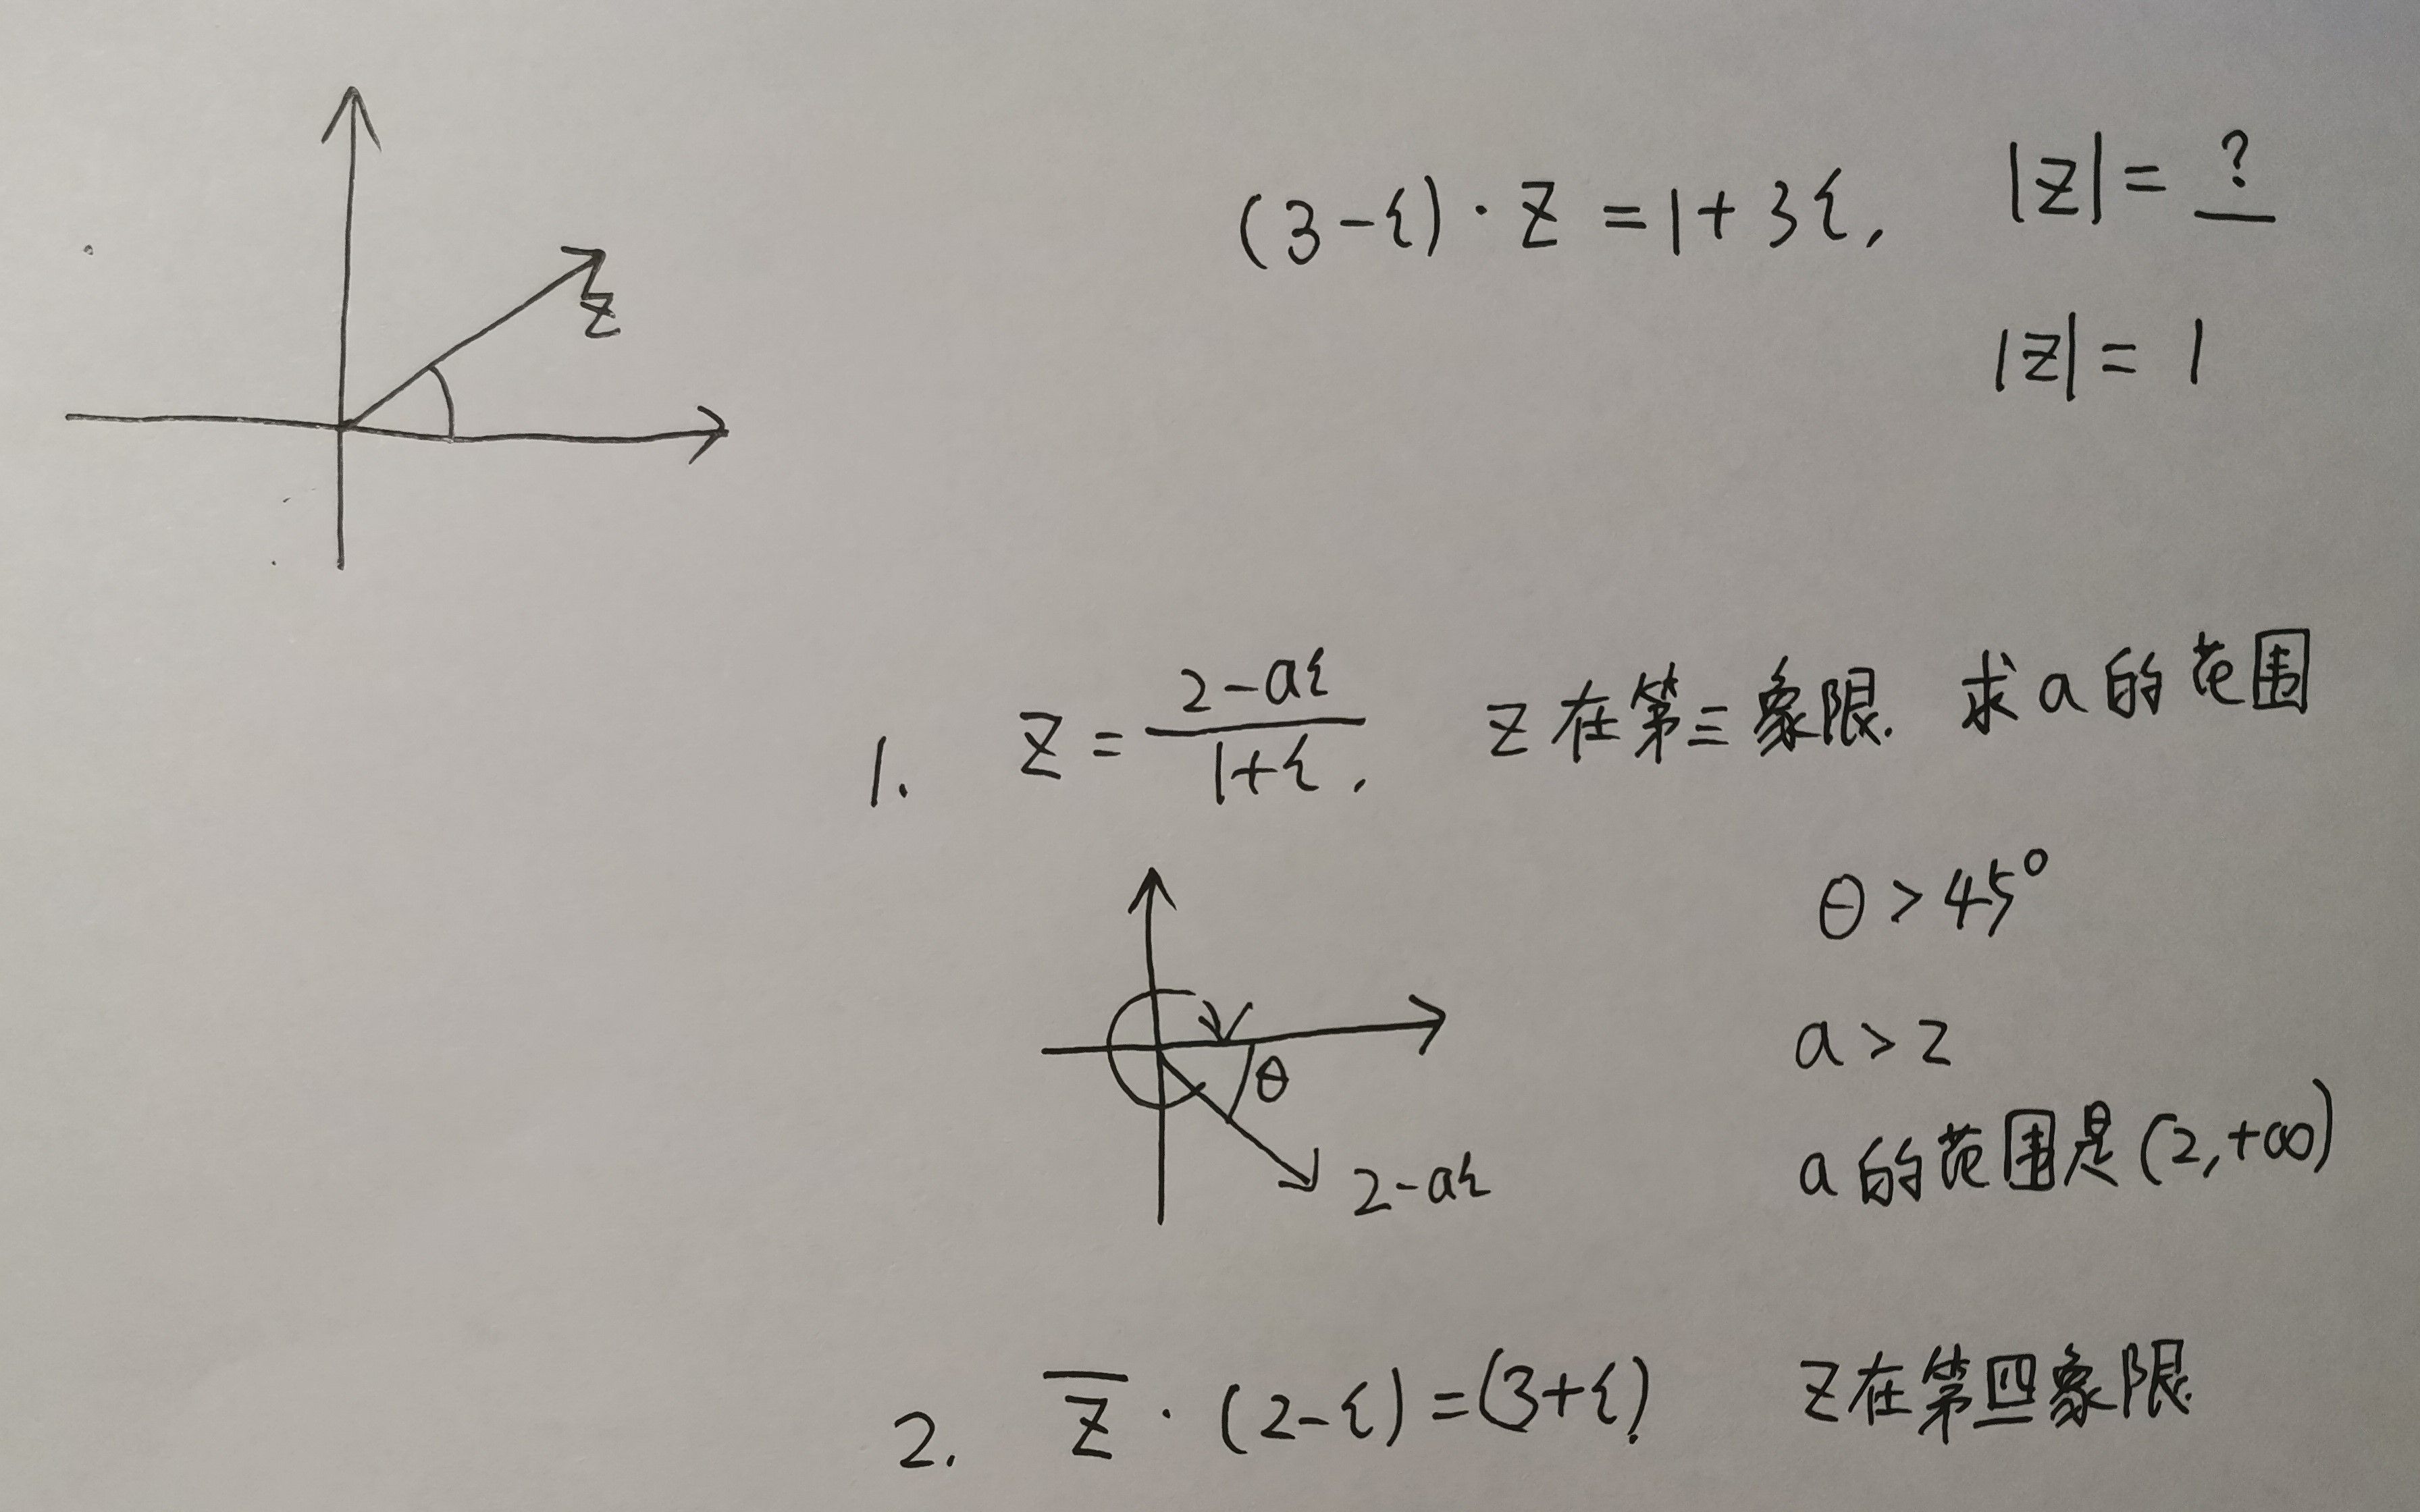 z
(3-i)·z=1+3i, |z|=?
|z|=1
1. z=\frac{2-ai}{1+i}, z在第三象限. 求a的范围
θ>45°
a>2
θ
2-ai
a的范围是(2,+∞)
2. \overline{z}·(2-i)=(3+i). z在第四象限.